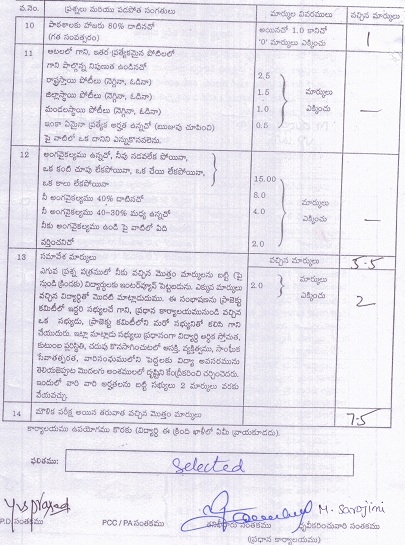 వ.నెం. ప్రశ్నలు మరియు పదపోత సంగతులు మార్కుల వివరములు వచ్చిన మార్కులు
10 పాఠశాలకు హాజరు 80% దాటినచో అయినచో 1.0 కానిచో 1
(గత సంవత్సరం) '0' మార్కులు ఎక్కించు
11 ఆటలలో గాని, ఇతర ప్రత్యేకమైన పోటీలలో
గాని పాల్గొన్న నిపుణుత ఉండినచో
రాష్ట్రస్థాయి పోటీలు (నెగ్గినా, ఓడినా) 2.5
జిల్లాస్థాయి పోటీలు (నెగ్గినా, ఓడినా) 1.5 మార్కులు
మండలస్థాయి పోటీలు (నెగ్గినా, ఓడినా) 1.0 ఎక్కించు —
ఇంకా ఏమైనా ప్రత్యేక అర్హత ఉన్నచో (ఋజువు చూపించి) 0.5
పై వాటిలో ఒక దానిని ఎన్నుకొనవలెను.
12 అంగవైకల్యము ఉన్నచో, నీవు నడవలేక పోయినా,
ఒక కంటి చూపు లేకపోయినా, ఒక చేయి లేకపోయినా, 15.00
ఒక కాలు లేకపోయినా
నీ అంగవైకల్యము 40% దాటినచో 8.0 మార్కులు
నీ అంగవైకల్యము 40-30% మధ్య ఉన్నచో 4.0 ఎక్కించు —
నీకు అంగవైకల్యము ఉండి పై వాటిలో ఏది
వర్తించనిచో 2.0
13 సమావేశ మార్కులు వచ్చిన మార్కులు 5.5
ఎగువ ప్రశ్న పత్రములో నీకు వచ్చిన మొత్తం మార్కులను బట్టి (పై
నుండి క్రిందకు) విద్యార్థులకు ఇంటర్వ్యూన్ పెట్టబడును. ఎక్కువ మార్కులు 2.0 మార్కులు
వచ్చిన విద్యార్థితో మొదటి మాట్లాడుదుము. ఈ సంభాషణను ప్రాజెక్టు ఎక్కించు 2
కమిటీలో ఇద్దరి సభ్యులచే గాని, ప్రధాన కార్యాలయమునుండి వచ్చిన
ఒక సభ్యుడు, ప్రాజెక్టు కమిటీలోని మరో సభ్యునితో కలిసి గాని
చేయుదురు. ఇట్లా మాట్లాడు సభ్యులు ప్రధానంగా విద్యార్థి ఆర్థిక స్తోమత,
కుటుంబ పరిస్థితి, చదువు కొనసాగించుటలో ఆసక్తి, వ్యక్తిత్వము, సాంఘిక
సేవాతత్పరత, వారిసంఘములోని పెద్దలకు విద్యా అవసరమును
తెలియజెప్పుట మొదలగు అంశములలో దృష్టిని కేంద్రీకరించి చర్చించెదరు.
ఇందులో వారి వారి అర్హతలను బట్టి సభ్యులు 2 మార్కులు వరకు
వేయవచ్చు.
14 మౌళిక పరీక్ష అయిన తరువాత వచ్చిన మొత్తం మార్కులు 7.5
కార్యాలయము ఉపయోగము కొరకు (విద్యార్థి ఈ క్రింది ఖాళీలో ఏమీ వ్రాయకూడదు).
ఫలితము: Selected
Y.V.S Prasad M. Sarojini
P.D. సంతకము PCC / PA సంతకము సంతకము ధృవీకరించువారి సంతకము
(ప్రధాన కార్యాలయం)